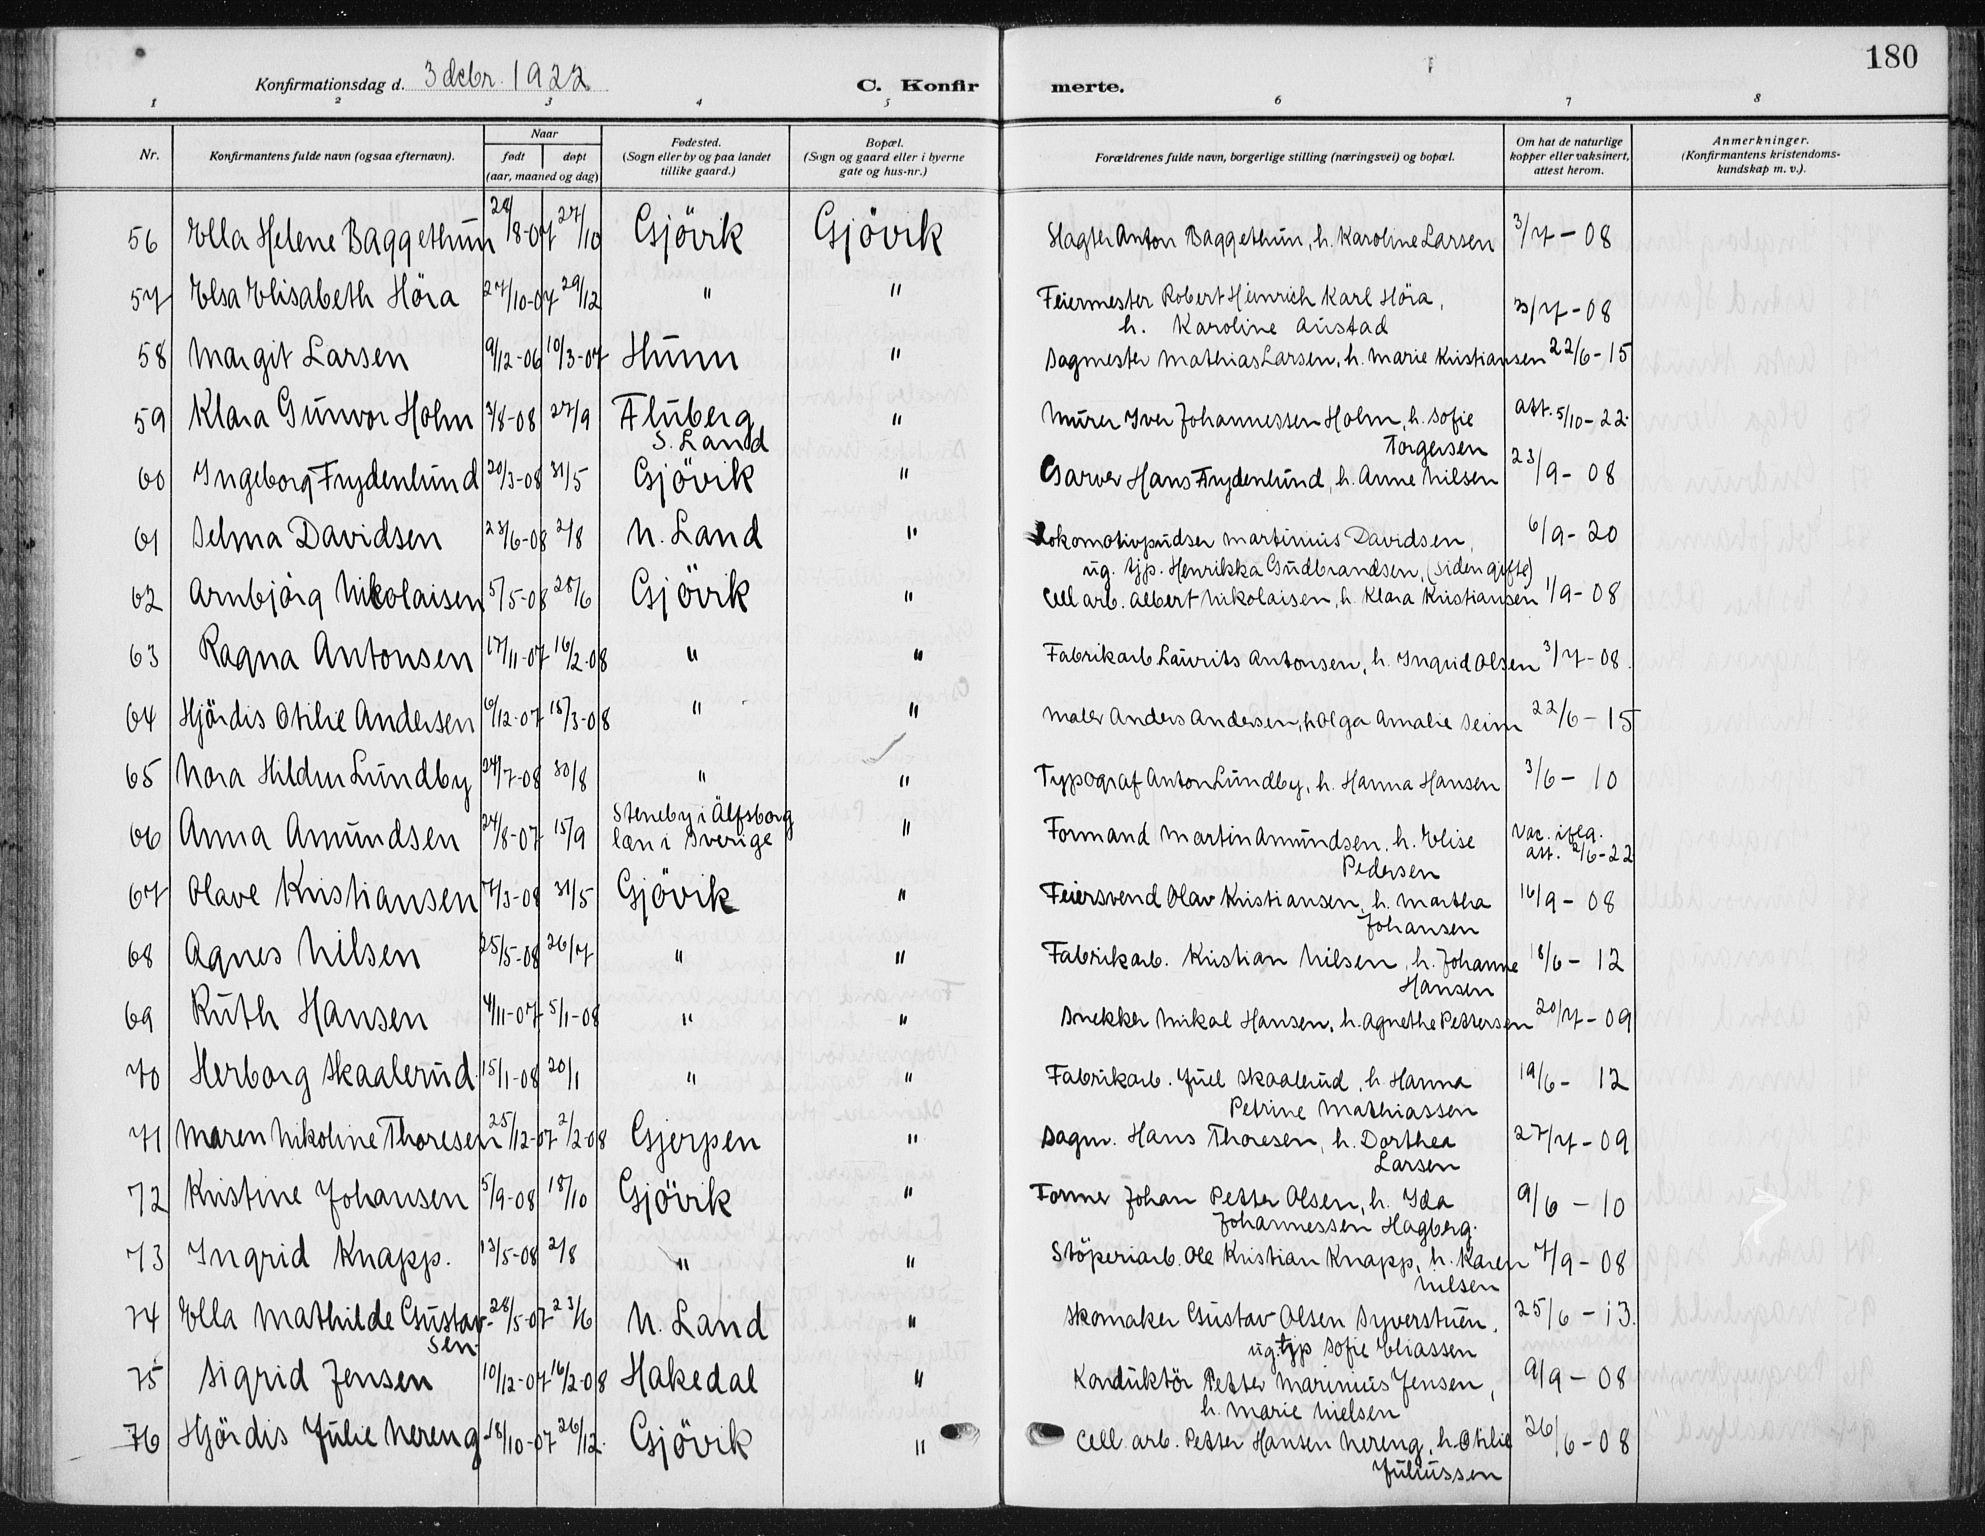 180
Konfirmationsdag d. 3 debr. 1922
C. Konfir merte.
1 2 3 4 5 6 7 8
Nr.
Konfirmantens fulde navn (ogsaa efternavn).
Naar
født døpt
(aar, maaned og dag)
Fødested.
(Sogn eller by og paa landet
tillike gaard.)
Bopæl.
(Sogn og gaard eller i byerne
gate og hus-nr.)
Forældrenes fulde navn, borgerlige stilling (næringsvei) og bopæl.
Om hat de naturlige
kopper eller vaksinert,
attest herom.
Anmerkninger.
(Konfirmantens kristendoms-
kundskap m. v.).
56 Ella Helene Baggethun 28/8-07 27/10 Gjövik Gjövik Slagter Anton Baggethun, h. Karoline Larsen 3/7-08
57 Elsa Elisabeth Höra 27/10-07 29/12 " " Feiermester Robert Heinrich Karl Höra, 3/7-08
h. Karoline Austad
58 Margit Larsen 9/12-06 10/3-07 Hunn " Sagmester Mathias Larsen, h. Marie Kristiansen 22/6-15
59 Klara Gunvor Holm 3/8-08 27/9 Fluberg " Murer Iver Johannessen Holm, h. Sofie att. 5/10-22.
S. Land Torgersen
60 Ingeborg Frydenlund 20/3-08 31/5 Gjövik " Garver Hans Frydenlund, h. Anne Nilsen 23/9-08
61 Selma Davidsen 23/6-08 2/8 N. Land " Lokomotivpudser Martinius Davidsen, 6/9-20
ug. tjp. Henrikka Gudbrandsen, (siden gifte)
62 Arnbjörg Nikolaisen 5/5-08 28/6 Gjövik " Cell arb. Albert Nikolaisen, h. Klara Kristiansen 1/9-08
63 Ragna Antonsen 17/11-07 16/2-08 " " Fabrikarb Laurits Antonsen, h. Ingrid Olsen 3/7-08.
64 Hjördis Otilie Andersen 6/12-07 15/3-08 " " Maler Anders Andersen, h Olga Amalie Seim 22/6-15
65 Nora Hildur Lundby 24/7-08 30/8 " " Typograf Anton Lundby, h. Hanna Hansen 3/6-10
66 Anna Amundsen 24/8-07 15/9 Steneby i Älfsborg " Formand Martin Amundsen, h. Elise Vac. iflg.
læn i Sverige Pedersen att. 2/6-22
67 Olave Kristiansen 7/3-08 31/5 Gjövik " Feiersvend Olav Kristiansen, h. Martha 16/9-08
Johansen
68 Agnes Nilsen 25/5-08 26/7 " " Fabrikarb. Kristian Nilsen, h. Johanne 18/6-12
Hansen
69 Ruth Hansen 4/11-07 5/1-08 " " Snekker Mikal Hansen, h. Agnethe Pettersen 20/7-09
70 Herborg Skaalerud 15/1-08 20/1 " " Fabrikarb. Juel Skaalerud, h. Hanna 19/6-12
Petrine Mathiassen
71 Maren Nikoline Thoresen 25/12-07 2/2-08 Gjerpen " Sagm. Hans Thoresen, h. Dorthea 27/7-09
Larsen
72 Kristine Johansen 5/9-08 18/10 Gjövik " Former Johan Petter Olsen, h. Ida 9/6-10
Johannessen Hagberg.
73 Ingrid Knapp. 13/5-08 2/8 " " Stöperiarb. Ole Kristian Knapp, h. Karen 7/9-08
Nilsen
74 Ella Mathilde Gustav- 28/5-07 23/6 N. Land " Skomaker Gustav Olsen Syverstuen, 25/6-13.
sen ug. tjp Sofie Eliassen
75 Sigrid Jensen 10/12-07 16/2-08 Hakedal " Konduktör Petter Marinius Jensen, 9/9-08
h. Marie Nielsen
76 Hjördis Julie Nereng 18/10-07 26/12. Gjövik " Cell. arb. Petter Hansen Nereng, h. Otilie 26/6-08
Juliussen